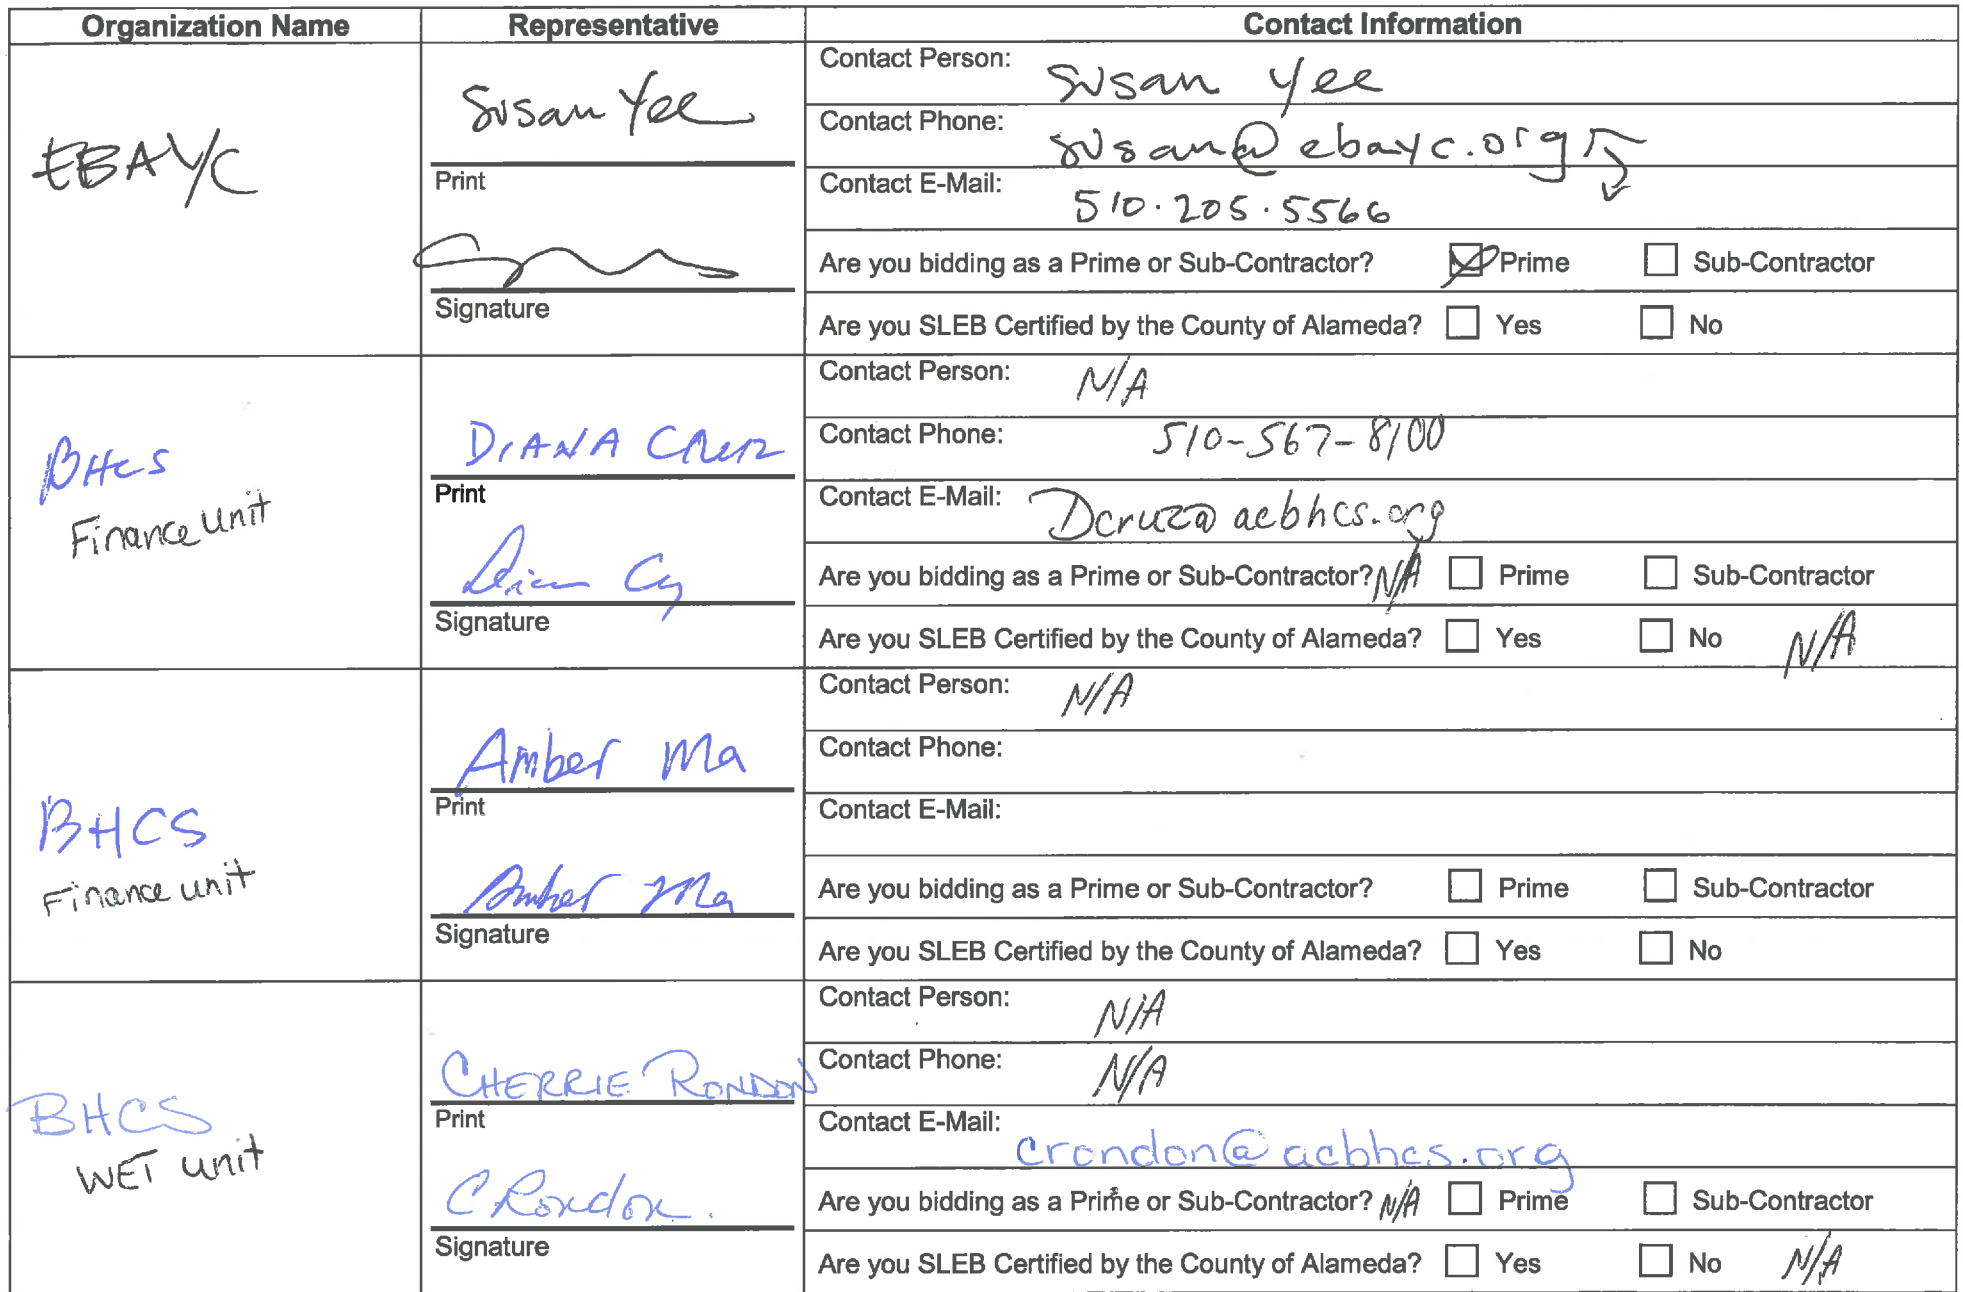 Organization Name Representative Contact Information
EBAYC
Susan Yee
Print
Signature
Contact Person: Susan Yee
Contact Phone: susan@ebayc.org
Contact E-Mail: 510.205.5566
Are you bidding as a Prime or Sub-Contractor? Prime Sub-Contractor
Are you SLEB Certified by the County of Alameda? Yes No
BHCS
Finance unit
DIANA CRUZ
Print
Signature
Contact Person: N/A
Contact Phone: 510-567-8100
Contact E-Mail: Dcruz@acbhcs.org
Are you bidding as a Prime or Sub-Contractor? N/A Prime Sub-Contractor
Are you SLEB Certified by the County of Alameda? Yes No N/A
BHCS
Finance unit
Amber Ma
Print
Amber Ma
Signature
Contact Person: N/A
Contact Phone:
Contact E-Mail:
Are you bidding as a Prime or Sub-Contractor? Prime Sub-Contractor
Are you SLEB Certified by the County of Alameda? Yes No
BHCS
WET unit
CHERRIE RONDON
Print
C Rondon.
Signature
Contact Person: N/A
Contact Phone: N/A
Contact E-Mail: crondon@acbhcs.org
Are you bidding as a Prime or Sub-Contractor? N/A Prime Sub-Contractor
Are you SLEB Certified by the County of Alameda? Yes No N/A